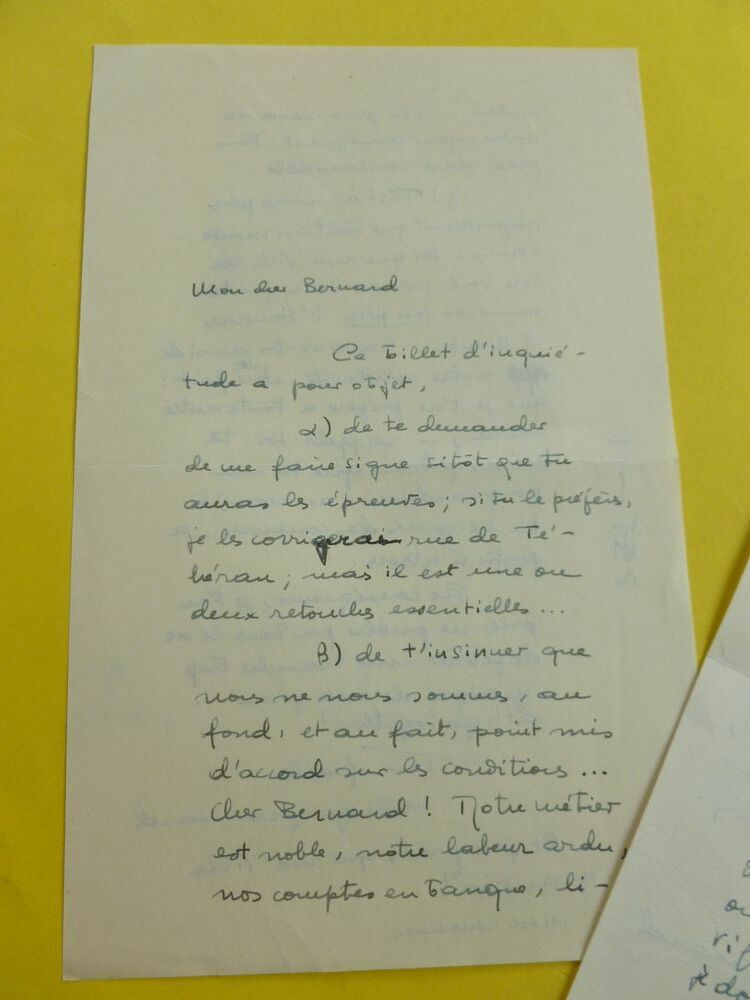 Mon cher Bernard
Ce billet d'inquié-
tude a pour objet,
α) de te demander
de me faire signe sitôt que tu
auras les épreuves ; si tu le préfères,
je les corrigerai rue de Té-
héran ; mais il est une ou
deux retouches essentielles ...
β) de t'insinuer que
nous ne nous sommes, au
fond, et au fait, point mis
d'accord sur les conditions ...
Cher Bernard ! Notre métier
est noble, notre labeur ardu,
nos comptes en banque, li-